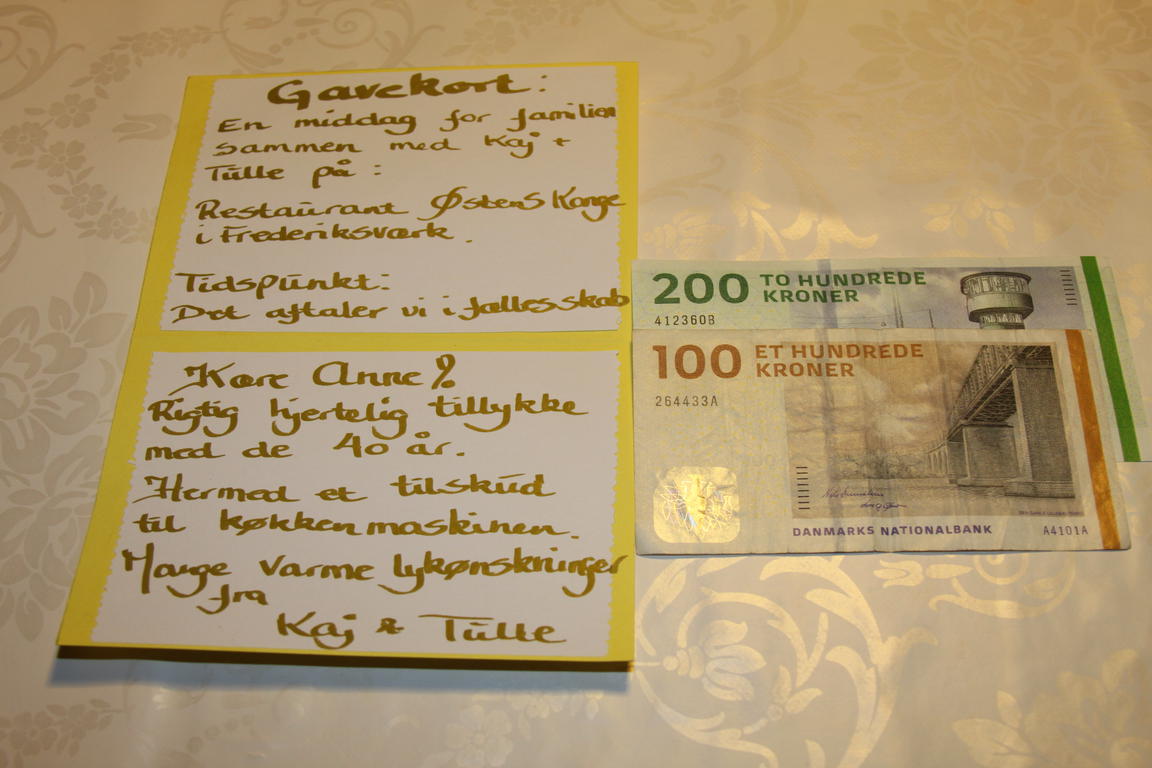 Gavekort:
En middag for familien
sammen med Kaj +
Tülle på:
Restaurant Østens Konge
i Frederiksværk.
Tidspunkt:
Det aftaler vi i fællesskab
Kære Anne!
Rigtig hjertelig tillykke
med de 40 år.
Hermed et tilskud
til køkkenmaskinen.
Mange varme lykønskninger
fra
Kaj & Tülle
200 TO HUNDREDE
KRONER
412360B
100 ET HUNDREDE
KRONER
264433A
DANMARKS NATIONALBANK A4101A